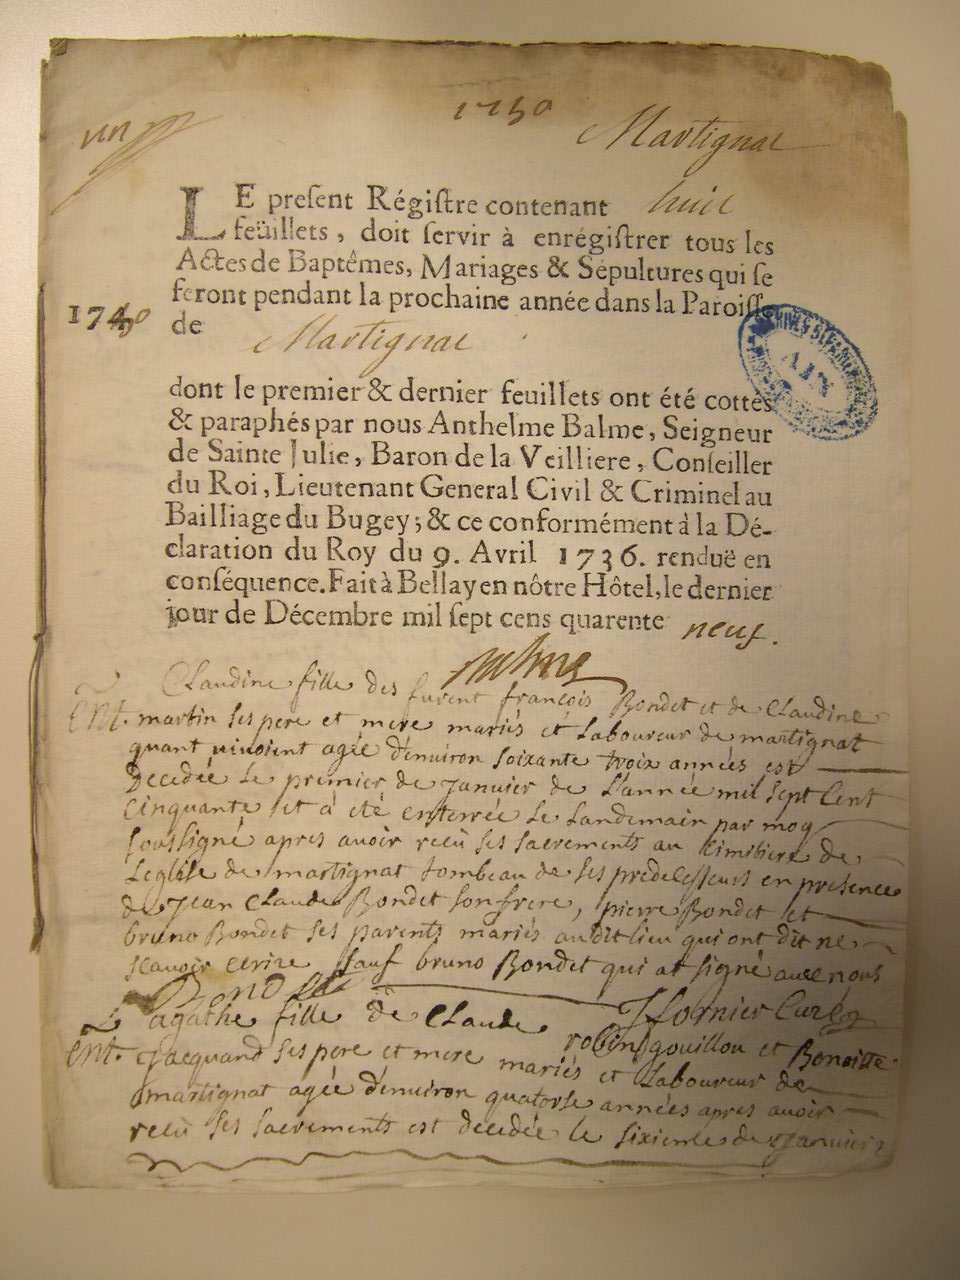 1750
un
Martignat
LE preſent Régiſtre contenant huit
feüillets, doit ſervir à enrégiſtrer tous les
Actes de Baptêmes, Mariages & Sépultures qui ſe
feront pendant la prochaine année dans la Paroiſſe
1750
de Martignat
ARCHIVES DEPARTEM
AIN
dont le premier & dernier feuillets ont été cottés
& paraphés par nous Anthelme Balme, Seigneur
de Sainte Julie, Baron de la Veilliere, Conſeiller
du Roi, Lieutenant General Civil & Criminel au
Bailliage du Bugey; & ce conformément à la Dé-
claration du Roy du 9. Avril 1736. renduë en
conſéquence. Fait à Bellay en nôtre Hôtel, le dernier
jour de Décembre mil ſept cens quarente neuf.
Balme
Claudine fille des furent françois Bondet et de Claudine
Ent. martin ses pere et mere mariés et Laboureur de martignat
quant vivoient agée d'environ soixante troix années est
Decedée le premier de Janvier de L'année mil sept Cent
Cinquante et á eté enterrée Le Landemain par moy
soussigné apres avoir reçu ses sacrements au Cimitiere de
Leglise de martignat tombeau de ses predecesseurs en presence
de Jean Claude Bondet son frere, pierre Bondet et
bruno Bondet ses parents mariés audit lieu qui ont dit ne
scavoir ecrire sauf bruno Bondet qui at signé avec nous
Bondet
JFornier Curé
agathe fille de Claude robin gouillou et Benoitte
Ent. Jacquand ses pere et mere mariés et Laboureur de
martignat agée d'environ quatorse années apres avoir
recu ses sacrements est decedée le sixieme de Janvier